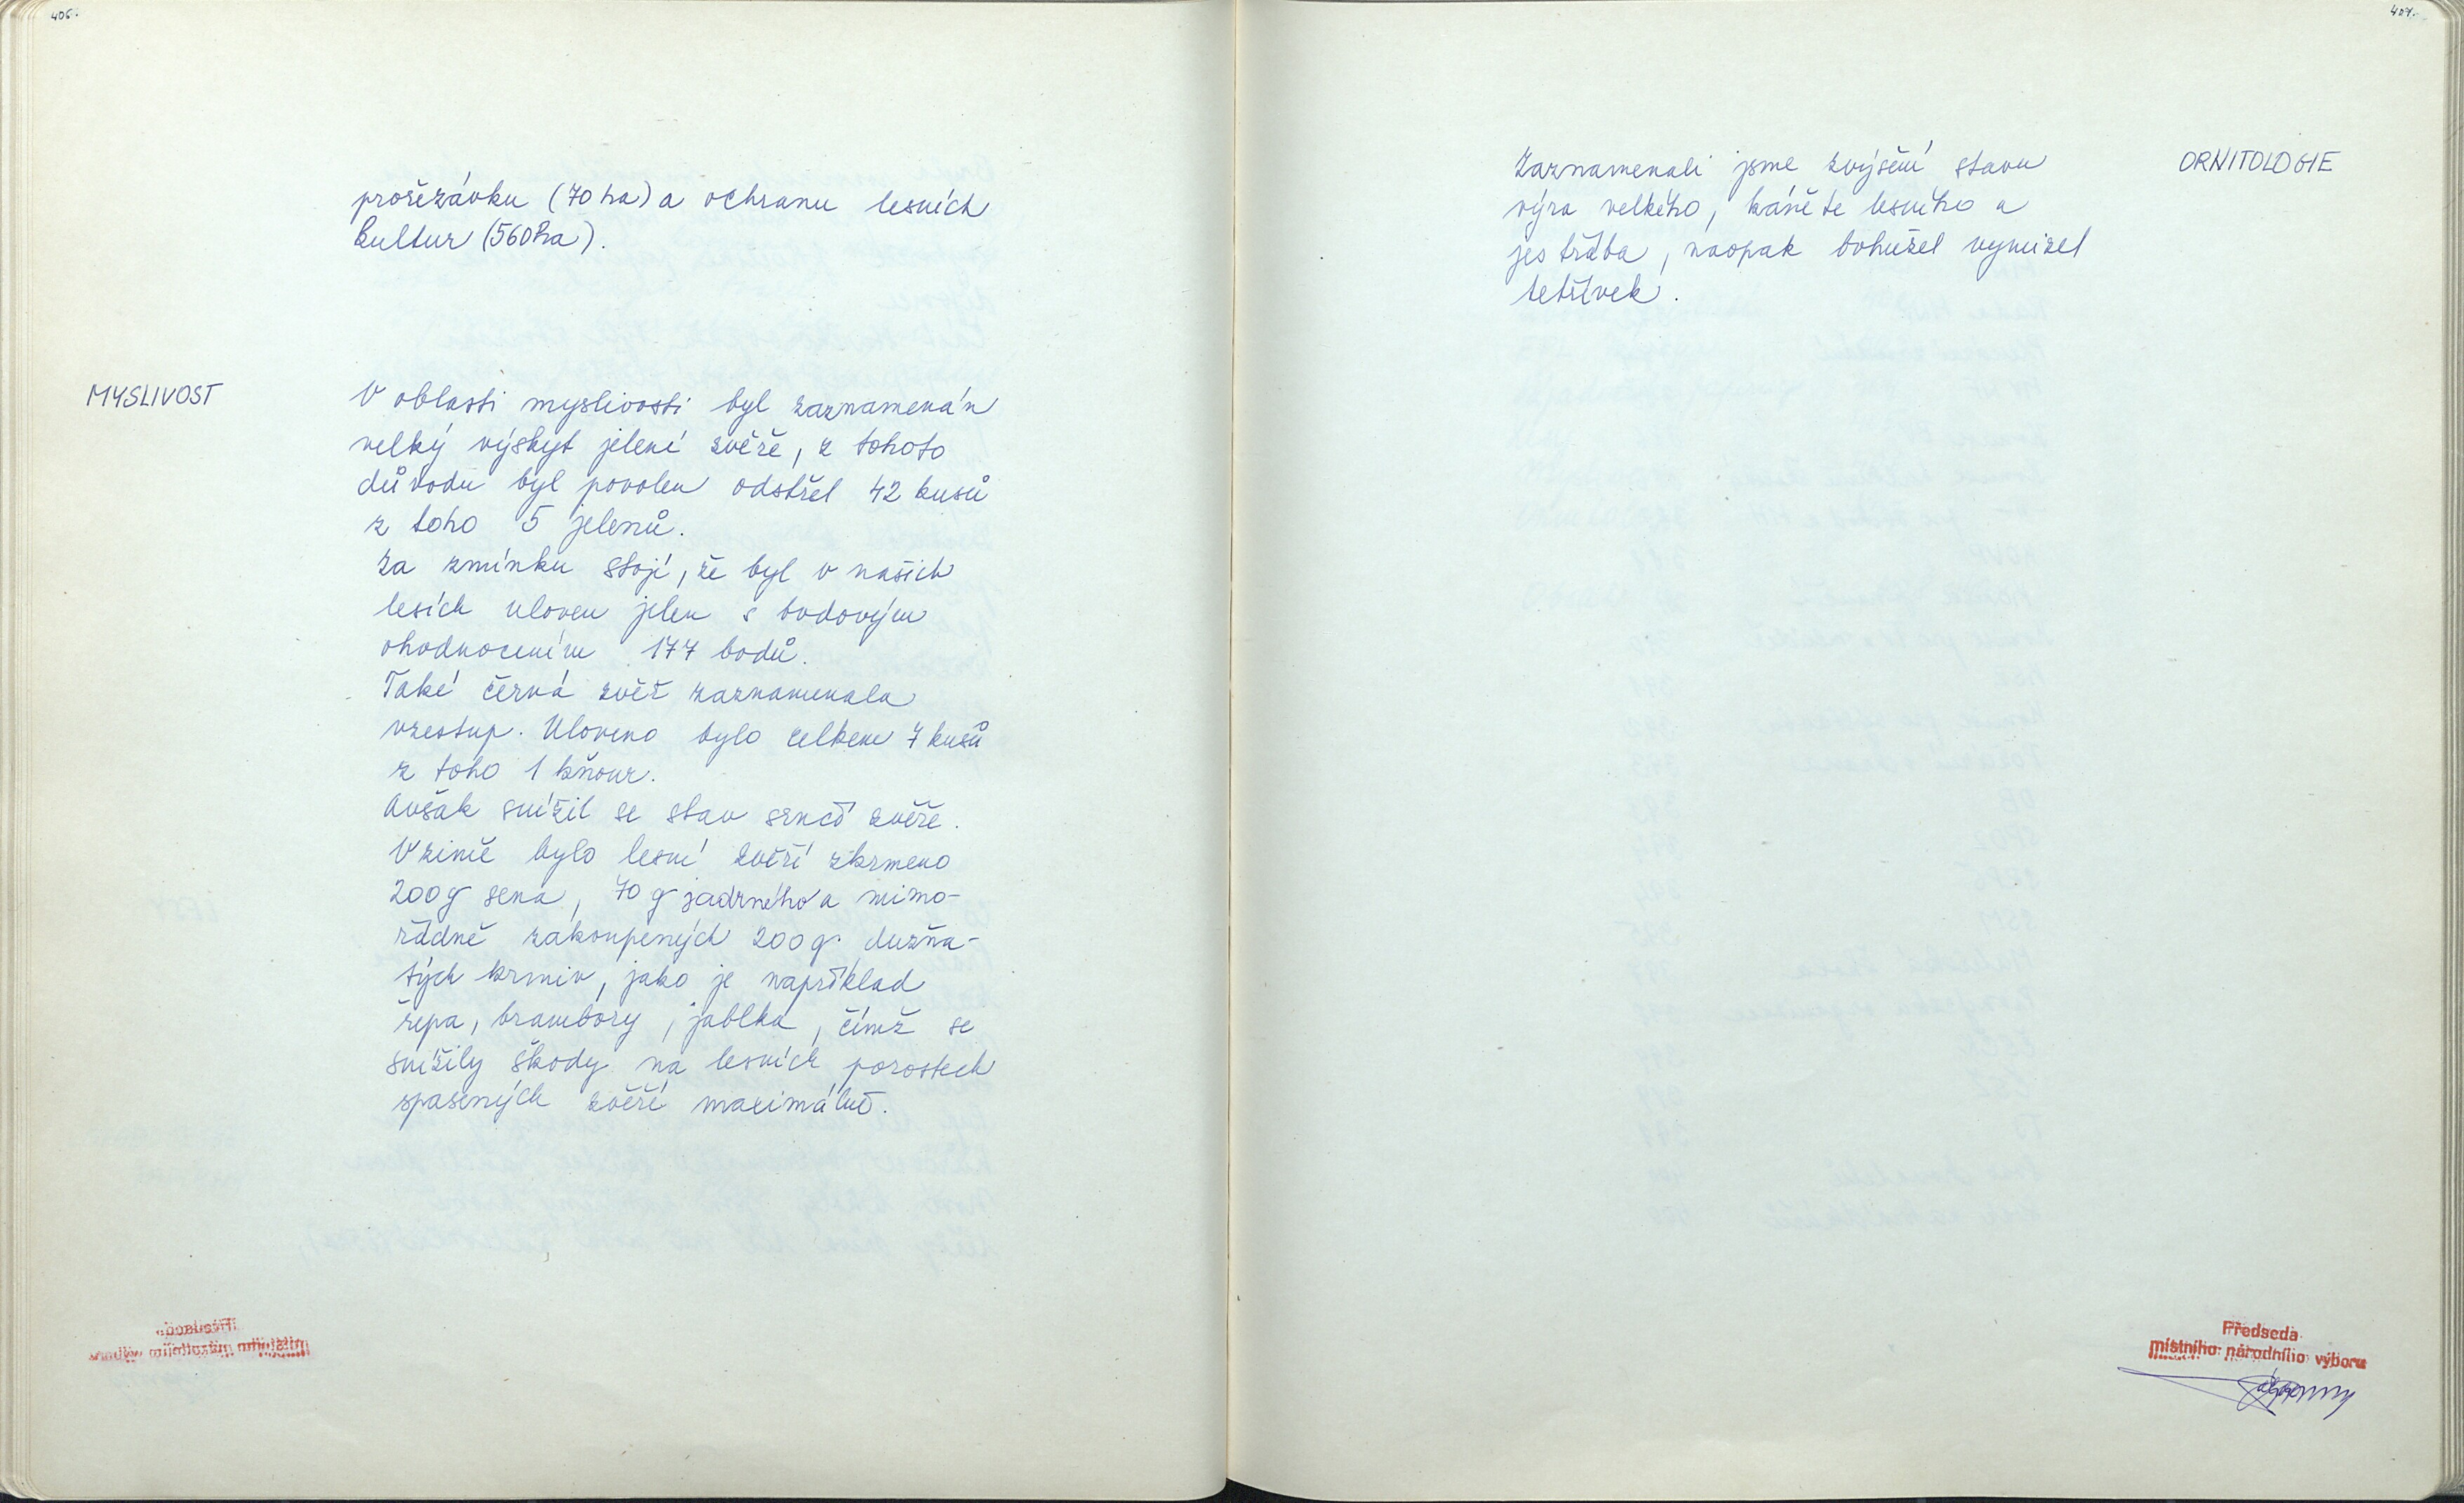 406.
prořezávku (70 ha) a ochranu lesních
kultur (560 ha).
MYSLIVOST
V oblasti myslivosti byl zaznamenán
velký výskyt jelení zvěře, z tohoto
důvodu byl povolen odstřel 42 kusů
z toho 5 jelenů.
Za zmínku stojí, že byl v našich
lesích uloven jelen s bodovým
ohodnocením 177 bodů.
Také černá zvěř zaznamenala
vzestup. Uloveno bylo celkem 7 kusů
z toho 1 kňour.
Avšak snížil se stav srnčí zvěře.
V zimě bylo lesní zvěří zkrmeno
200 q sena, 70 q jadrného a mimo-
řádně zakoupených 200 q dužna-
tých krmiv, jako je například
řepa, brambory, jablka, čímž se
snížily škody na lesních porostech
spasených zvěří maximálně.
407.
ORNITOLOGIE
Zaznamenali jsme zvýšení stavu
výra velkého, káněte lesního a
jestřába, naopak bohužel vymizel
tetřívek.
Předseda
místního národního výboru